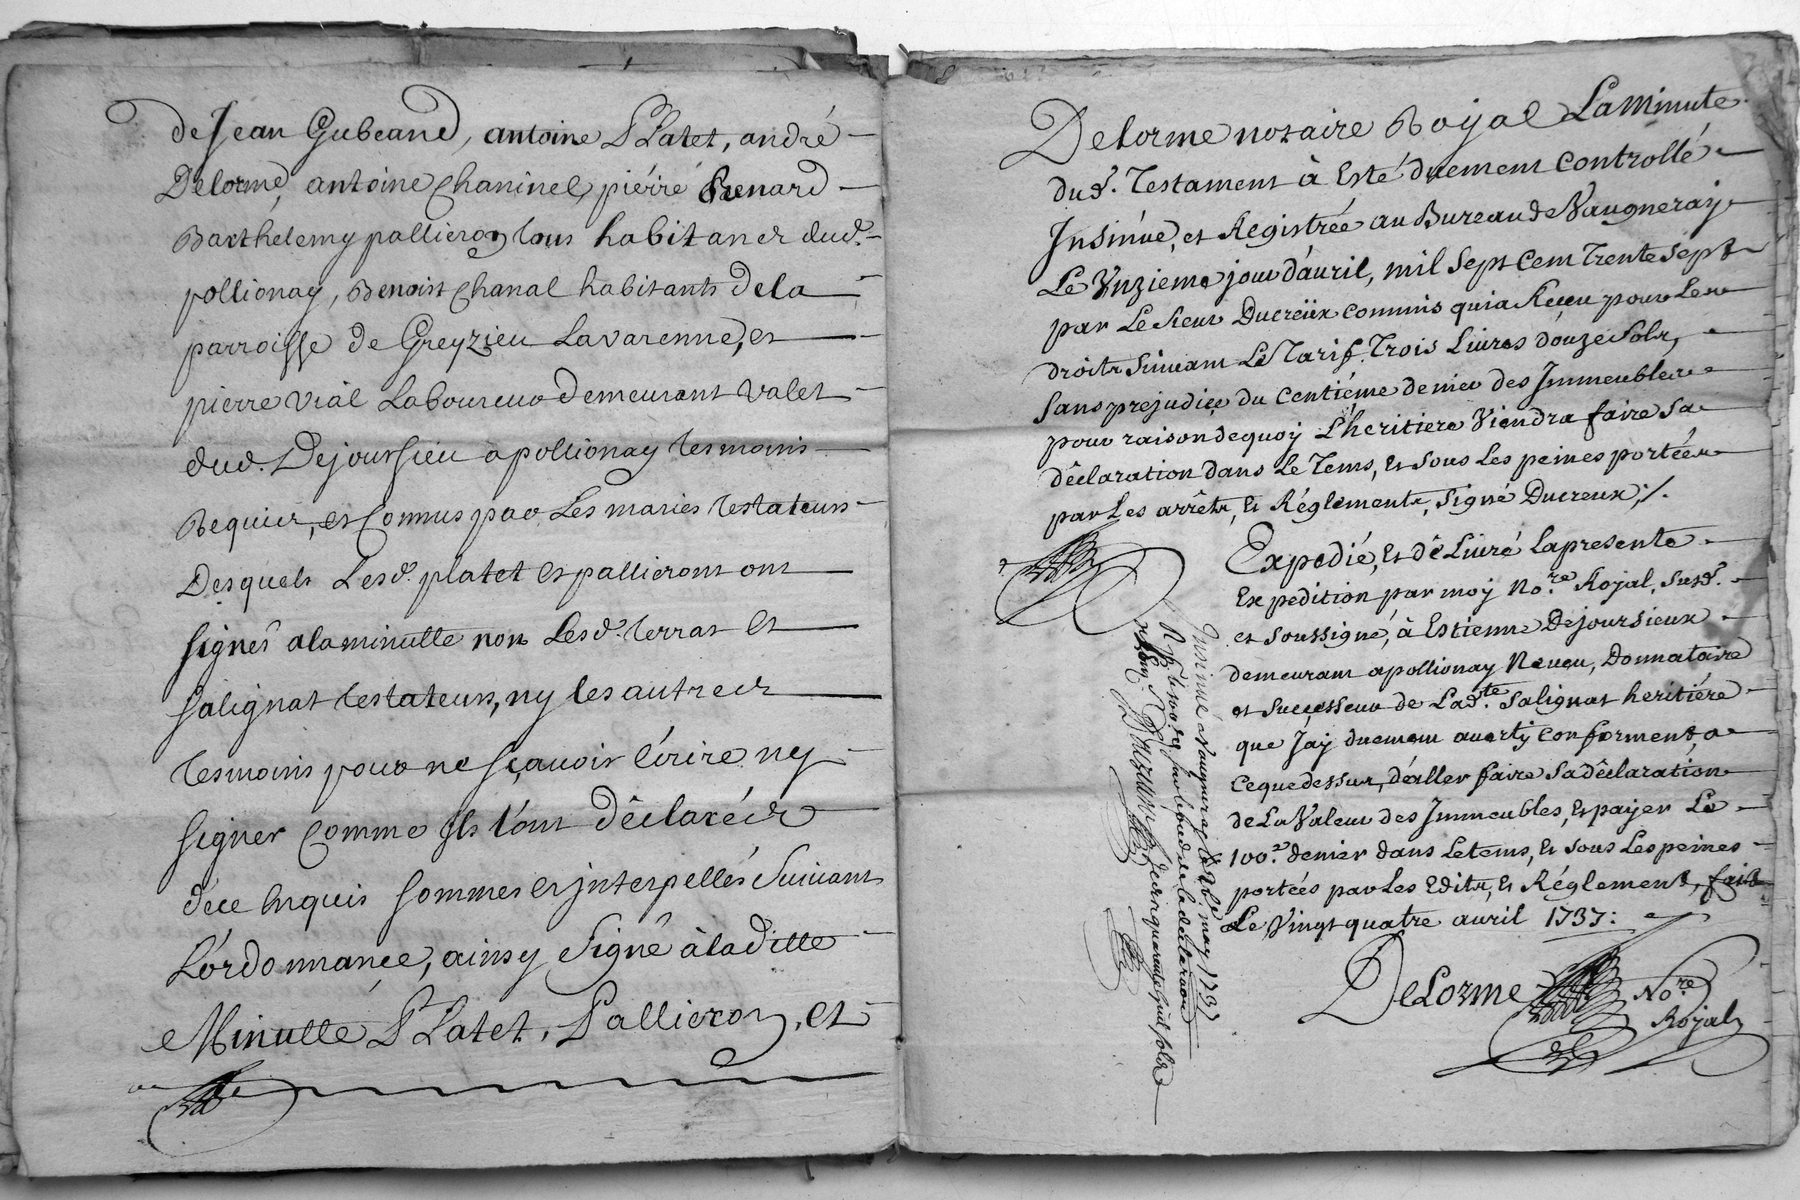 de Jean Gubeand, antoine Platet, andré
Delorme, antoine Chaninel, piérre Renard
Barthelemy pallieron tous habitans dud.
pollionay, Benoist Chanal habitants dela
parroisse de Greyzieu Lavarenne, et
pierre vial Laboureur demeurant valet
dud. Dejoursieu a pollionay tesmoins
Requis, et Connus par Les mariés testateurs
Desquels Lesd. platet et pallieront ont
signés ala minutte non Lesd. terrat et
Salignat testateurs, ny les autres
tesmoins pour ne sçavoir Ecrire ny
signer comme ils l'ont déclarés
dece Enquis sommes et interpellés suivant
L'ordonnance, ainsy signé à la ditte
Minutte Platet, Pallieron, et
Delorme notaire Royal La Minute
dud. Testament à Esté duement Controllé
Insinué, et Registrée au Bureau de Vaugneray
Le Unzieme jour d'auril, mil sept cent Trente sept
par Le sieur Ducreüx commis qui a Receu pour Les
droits suivant Le Tarif. Trois Livres douze sols,
sans prejudice du Centiéme denier des Immeubles
pour raison dequoy L'heritiere Viendra faire sa
déclaration dans Le Tems, et sous Les peines portées
par Les arrêts, et Réglements, signé Ducreux ;/.
Expedié, et délivré Lapresente
Expedition par moy No.re Royal, susd.
et soussigné, à Estienne Dejoursieux
demeurant apollionay Neveu, Donnataire
et Successeur de Lad.te Salignat heritiére
que J'ay duement averty conforment, a
cequedessus, d'aller faire sa déclaration
de La Valeur des Immeubles, et payer Le
100.e denier dans Letems, et sous Les peines
portées par Les Edits, et Réglement, fait
Le Vingt quatre auril 1737:
Delorme No.re
Royal
Insinué a Vaugneray Le 2e may 1737